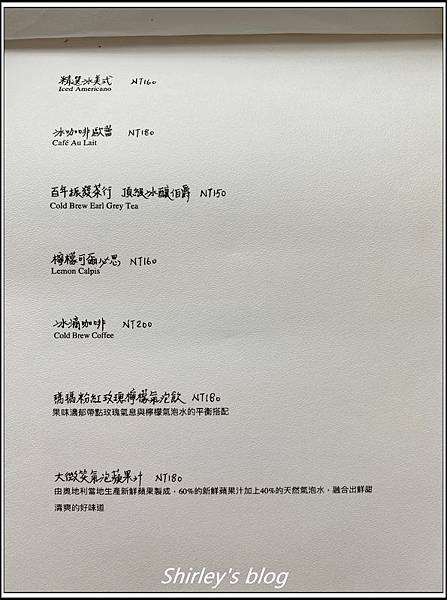 精選冰美式 NT160
Iced Americano
冰咖啡歐蕾 NT180
Café Au Lait
百年振發茶行 頂級冰釀伯爵 NT150
Cold Brew Earl Grey Tea
檸檬可爾必思 NT160
Lemon Calpis
冰滴咖啡 NT200
Cold Brew Coffee
瑪瑪粉紅玫瑰檸檬氣泡飲 NT180
果味濃郁帶點玫瑰氣息與檸檬氣泡水的平衡搭配
大微笑氣泡蘋果汁 NT180
由奧地利當地生產新鮮蘋果製成，60%的新鮮蘋果汁加上40%的天然氣泡水，融合出鮮甜
清爽的好味道
Shirley's blog